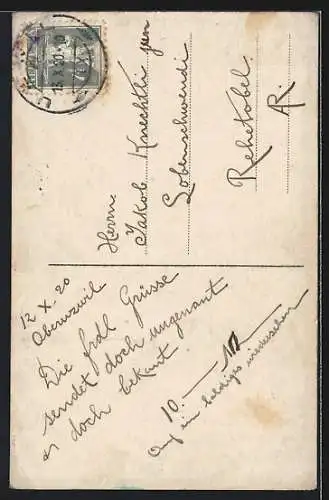 12 X. 20
Oberuzwil
Die frdl Grüsse
sendet doch ungenant
doch bekant
10.
Auf ein baldiges wiedersehen
Herrn
Jakob Knechtli jun
Lobenschwendi
Rehetobel
AR.